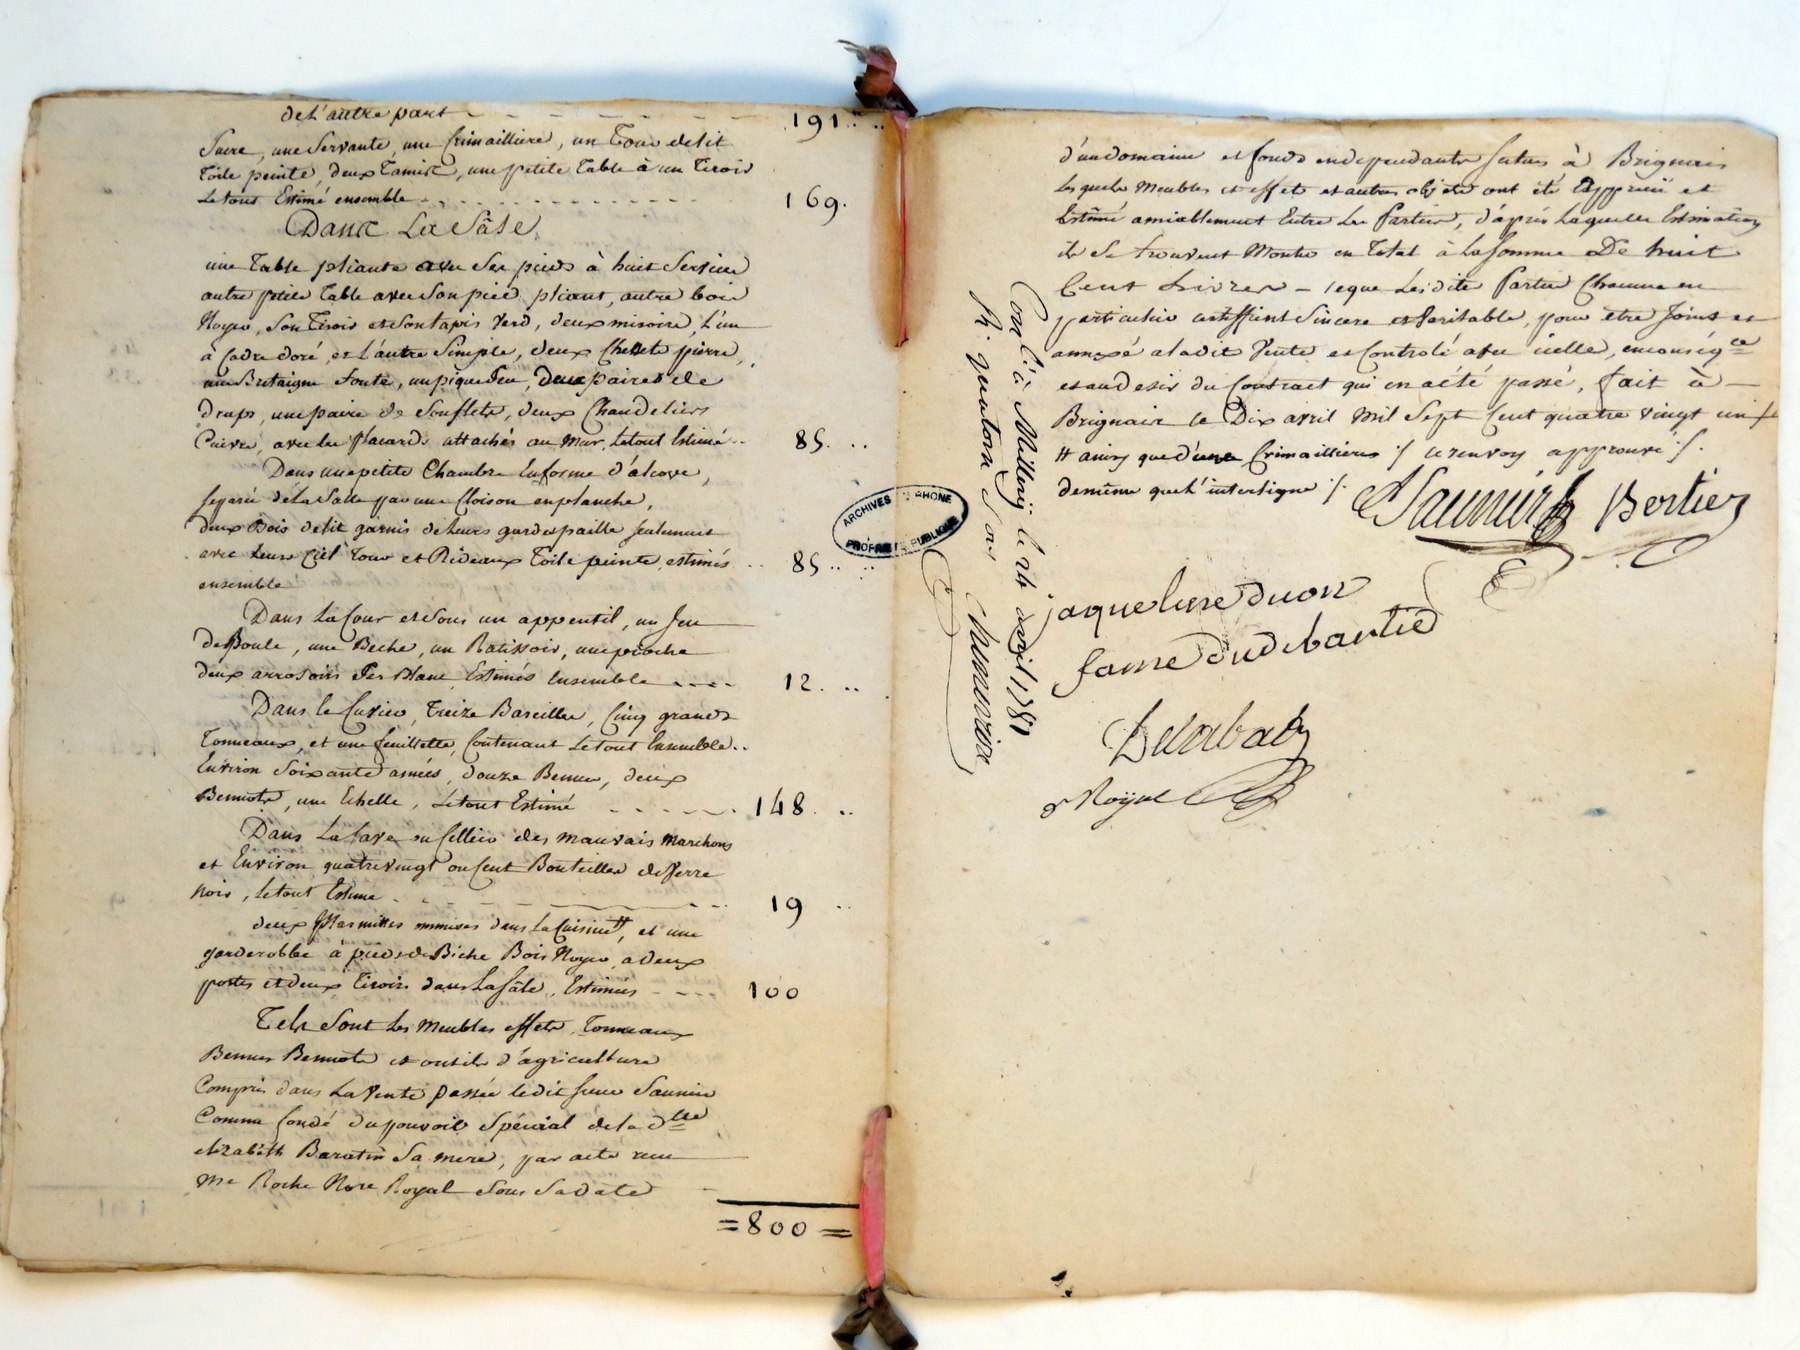 de L'autre part - - - - - - - 191 . ..
Sucre, une Servante, une Crimailliere, un Tour de lit
Toile peinte, deux Tamist, une petite Table à un Tiroir
Le tout Estimé ensemble - - - - - - - 169.
Dans La Sâle
une Table pliante avec Ses pieds à huit Service
autre petite Table avec Son pied pliant, autre bois
Noyer, Son Tiroir et Son tapis Verd, deux miroirs, L'un
à Cadre doré, et L'autre Simple, deux Chenets pierre,
une Bretaigne fonte, un pique feu, Deux paires de
draps, une paire de Souflets, deux Chandeliers
Cuivre, avec les placards attachés au Mur, Le tout Estimé .. 85. ..
Dans une petite Chambre En forme d'alcove,
Separée de La Salle par une Cloison en planche,
deux Bois de lit garnis de Leurs gardepaille Seulement
avec Leurs Ciel Tour et Rideaux Toile peinte, estimés .. 85 .. ..
ensemble
Dans La Cour et Sous un appentil, un Jeu
de Boule, une Beche, un Ratissoir, une pioche
deux arrosoirs Fer Blanc, Estimés Ensemble - - - - 12. ..
Dans le Cuvier, Treize Bareilles, Cinq grands
Tonneaux, et une feuillette, Contenant Le tout Ensemble ..
Environ Soixante anées, douze Bennes, deux
Bennots, une Echelle, Le tout Estimé - - - - - 148. ..
Dans La Cave ou Cellier des mauvais Marchons
et Environ quatrevingt ou Cent Bouteilles de Verre
noir, Le tout Estimé - - - - - 19 ..
deux Marmittes ommises dans La Cuisine #, et une
garderobbe à pieds de Biche Bois Noyer, a deux
portes et deux Tiroirs dans La Sâle, Estimées - - - - 100
Tels Sont Les Meubles effets, Tonneaux
Bennes Bennots et outils d'agriculture
Compris dans La Vente passée ledit Sieur Saunier
Comme fondé du pouvoir Spécial de la dlle
elizabeth Baratin Sa mere, par acte reçu
Me Roche Nore Royal Sous Sa date
= 800 =
d'un domaine et fonds independants Situés à Brignais
Lesquels Meubles et effets et autres objets ont été Apprecié et
Estimé amiablement Entre Les Parties, d'après Laquelle Estimation
ils Se trouvent Monter en Total à La Somme De huit
Cent Livres - ce que Lesdites Parties Chacune en
particulier certiffient Sincere et Veritable, pour etre Joint et
annexé a ladite Vente et Controlé avec icelle, en conségce
et au desir du Contract qui en a été passé, fait à -
Brignais le Dix avril Mil Sept Cent quatre vingt un /
# ainsy que d'une Crimailliere ·/ ce renvoy approuvé ·/.
de même que L'interligne ·/.
Saunier Bertier
jaqueline duon
fame dud bartie
Delorbat
Royné
Conlé à Millery le 24 avril 1781
R. quatorze Sols